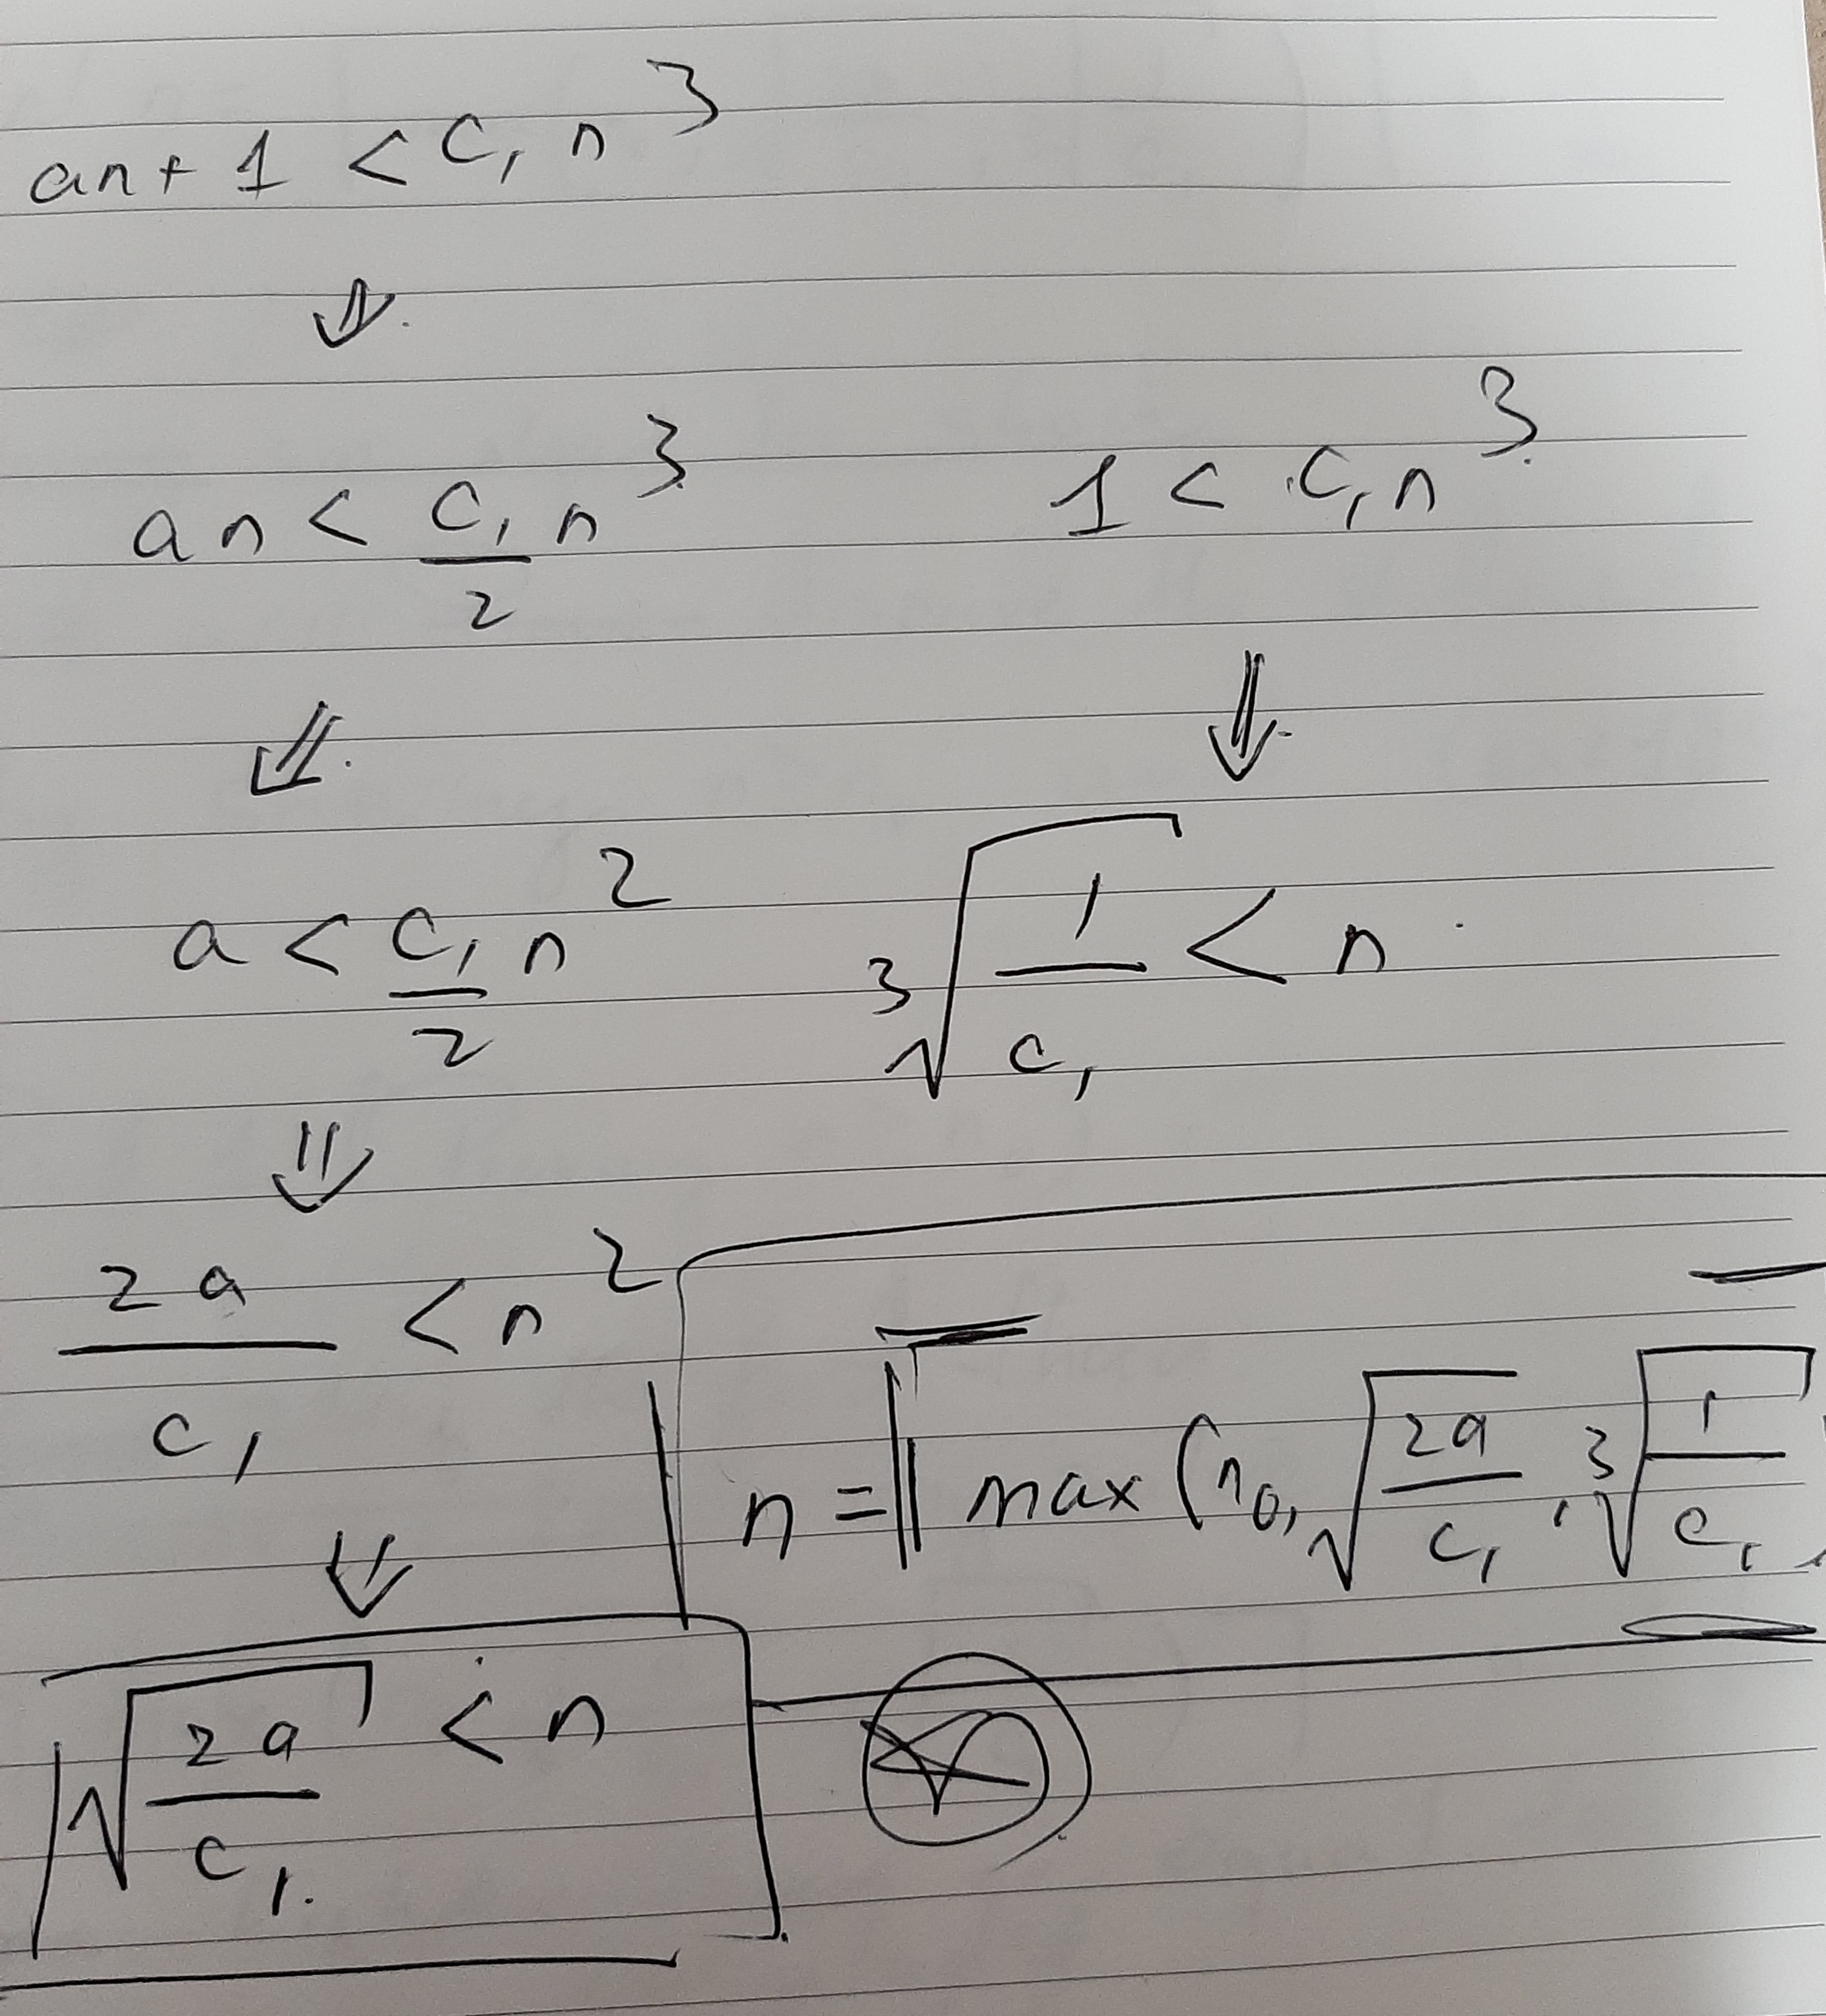 an + 1 < C₁ n³
⇓
an < C₁/2 n³
1 < C₁ n³
⇓ ⇓
a < C₁/2 n²
∛(1/C₁) < n
⇓
2a/C₁ < n²
n = ⌈max(n₀, √(2a/C₁), ∛(1/C₁)
⇓
√(2a/C₁) < n